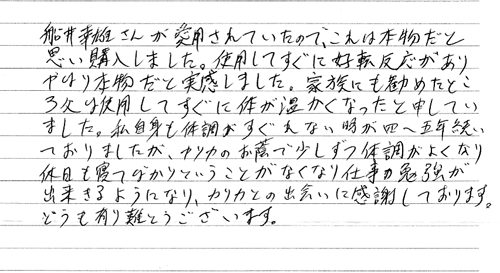 船井幸雄さんが愛用されていたので、これは本物だと
思い購入しました。使用してすぐに好転反応があり
やはり本物だと実感しました。家族にも勧めたとこ
ろ父は使用してすぐに体が温かくなったと申してい
ました。私自身も体調がすぐれない時が四〜五年続い
ておりましたが、カリカのお蔭で少しずつ体調がよくなり
休日も寝てばかりということがなくなり仕事や勉強が
出来るようになり、カリカとの出会いに感謝しております。
どうも有り難とうございます。